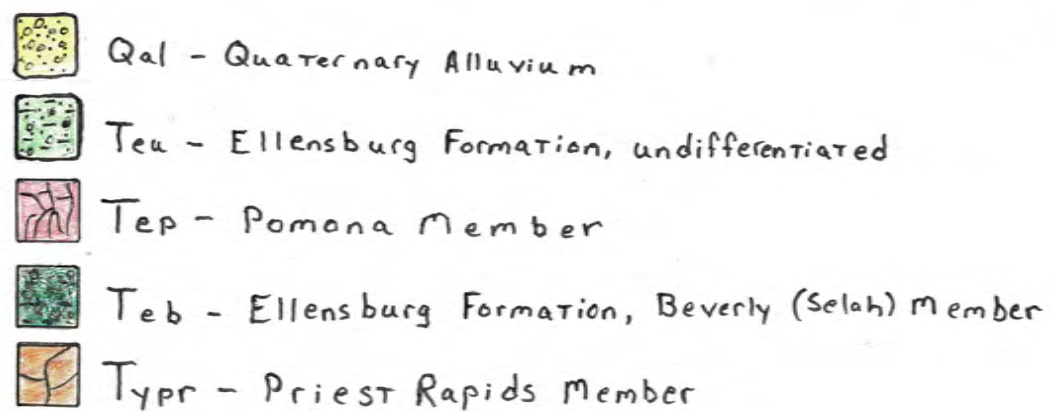 Qal - Quaternary Alluvium
Teu - Ellensburg Formation, undifferentiated
Tep - Pomona Member
Teb - Ellensburg Formation, Beverly (Selah) Member
Typr - Priest Rapids Member